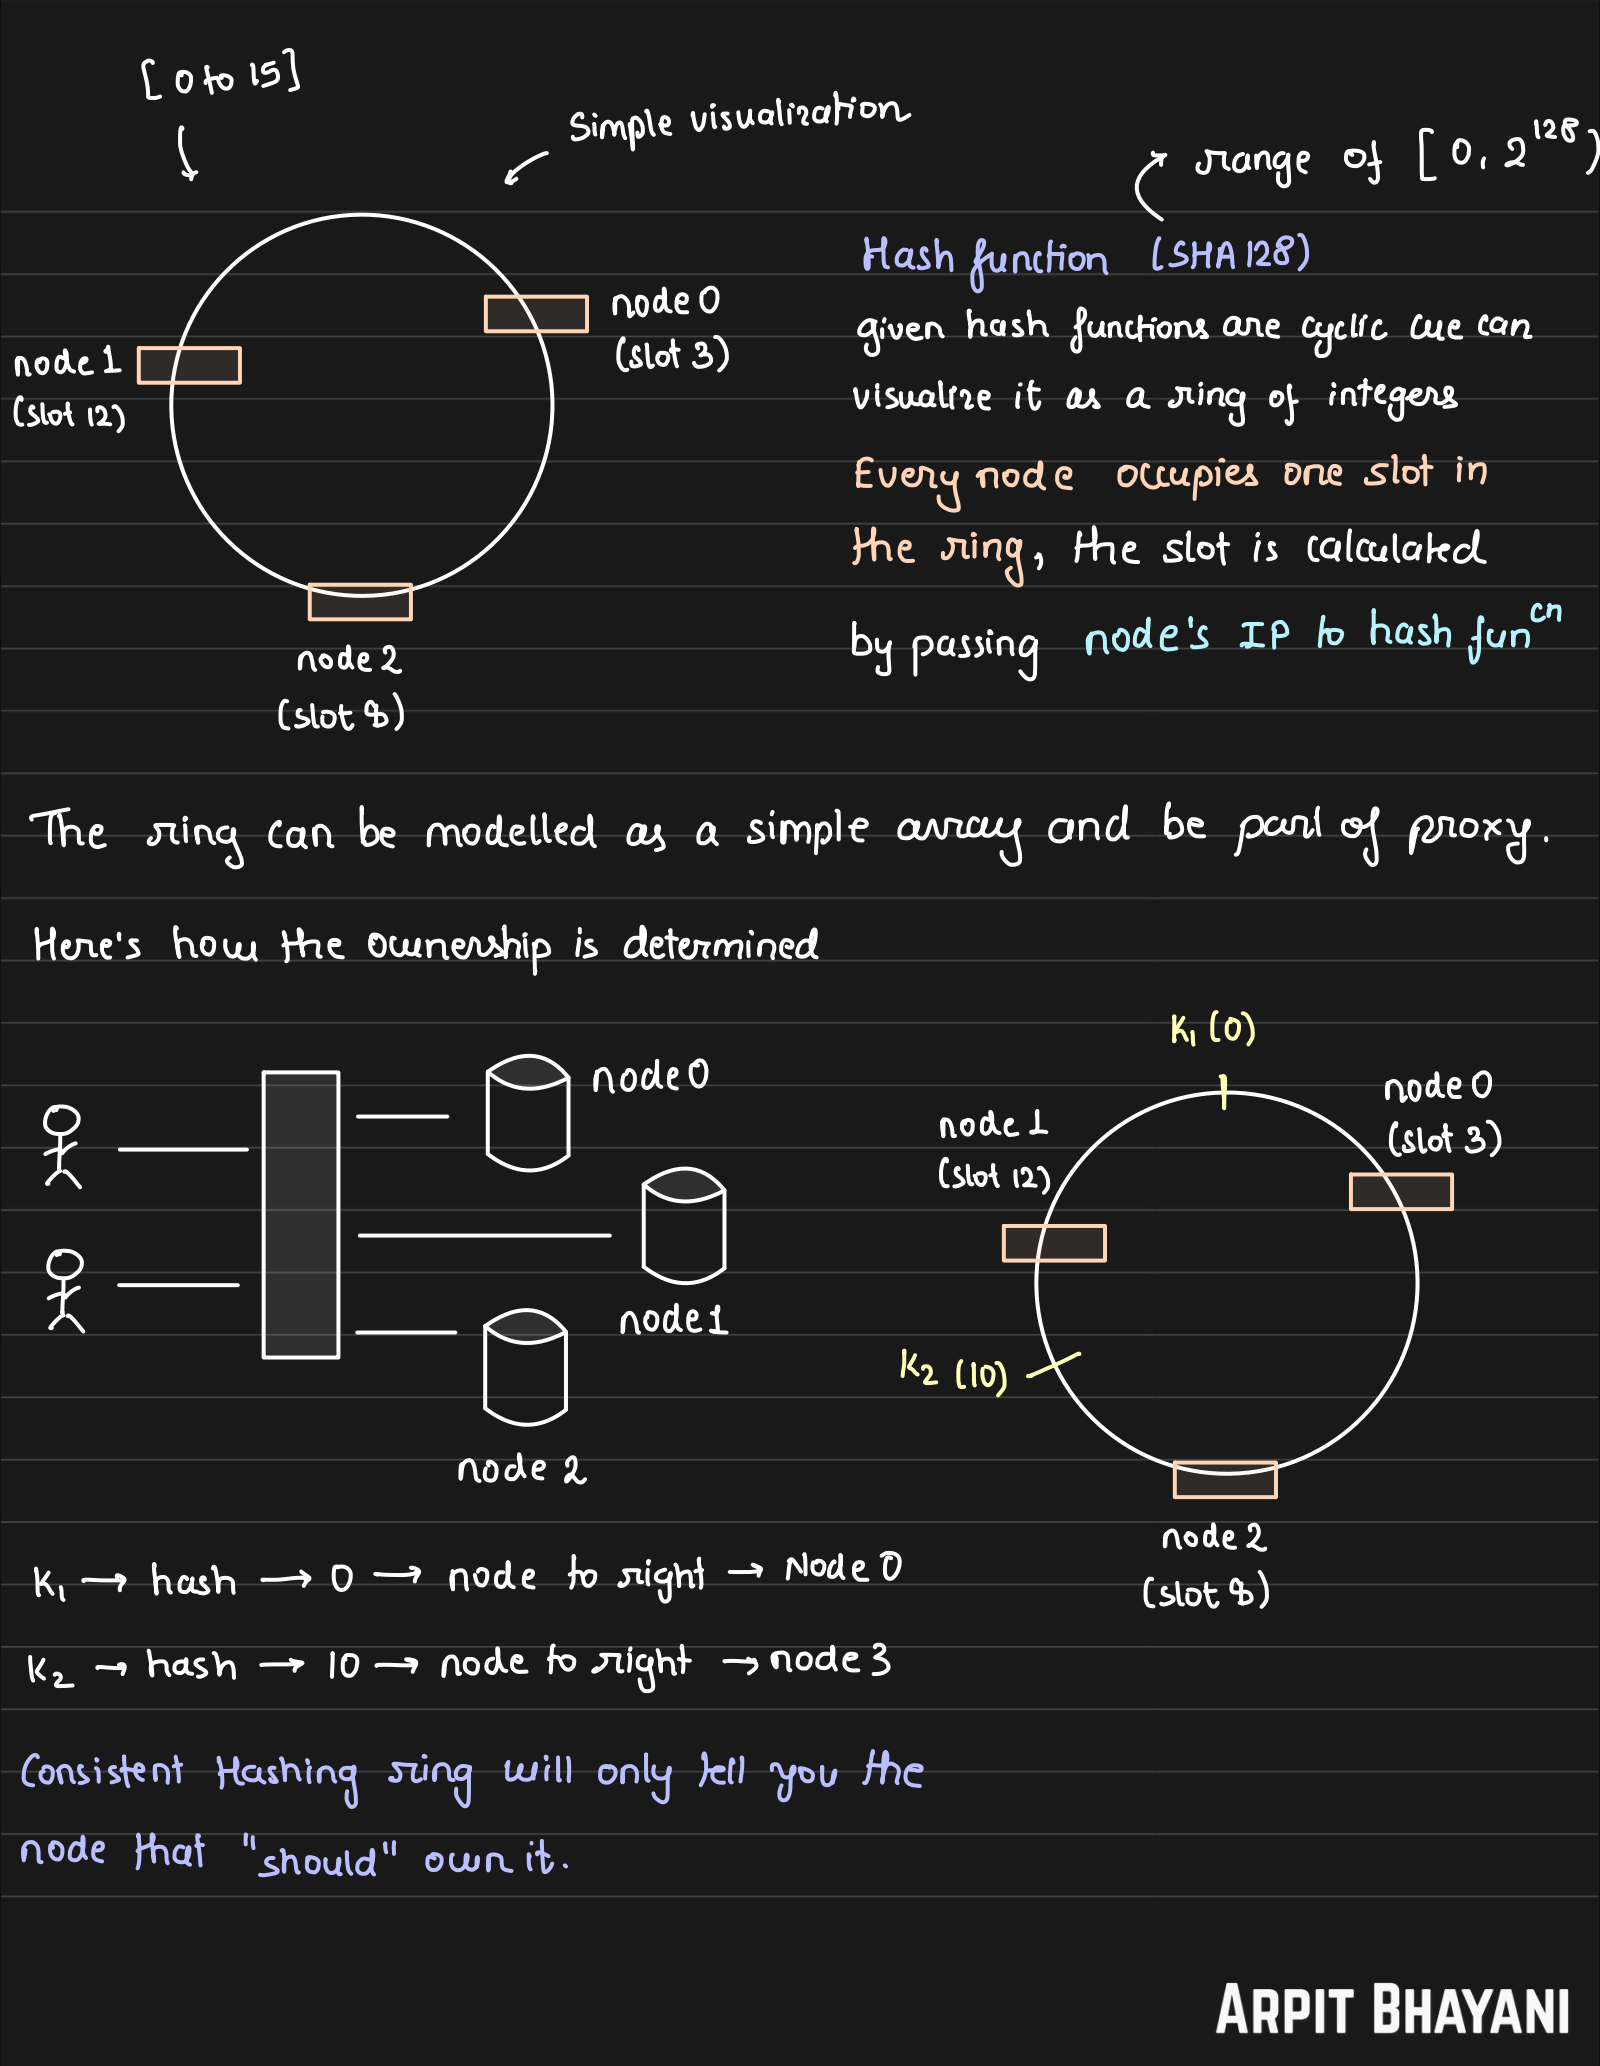 [0 to 15]
Simple visualization
range of [0, 2^128)
node 0
(slot 3)
node 1
(slot 12)
node 2
(slot 8)
Hash function (SHA128)
given hash functions are cyclic we can
visualize it as a ring of integers
Every node occupies one slot in
the ring, the slot is calculated
by passing node's IP to hash fun^cn
The ring can be modelled as a simple array and be part of proxy.
Here's how the ownership is determined
node 0
node 1
node 2
K₁ (0)
node 0
(slot 3)
node 1
(slot 12)
K₂ (10)
node 2
(slot 8)
K₁ → hash → 0 → node to right → Node 0
K₂ → hash → 10 → node to right → node 3
Consistent Hashing ring will only tell you the
node that "should" own it.
ARPIT BHAYANI